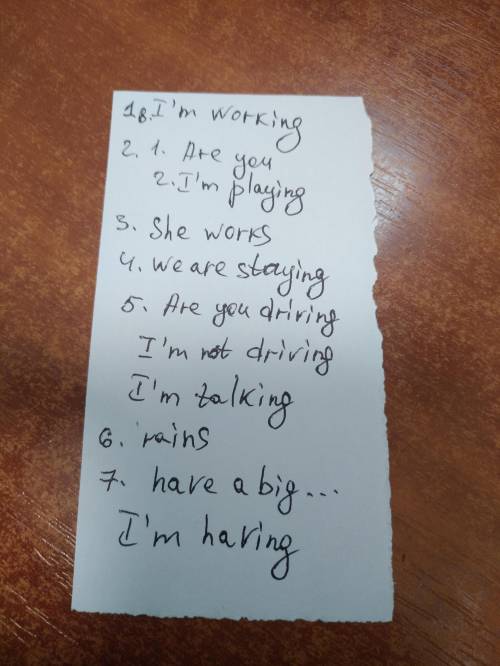 1B. I'm working
2. 1. Are you
2. I'm playing
3. She works
4. we are staying
5. Are you driving
I'm not driving
I'm talking
6. rains
7. have a big...
I'm having